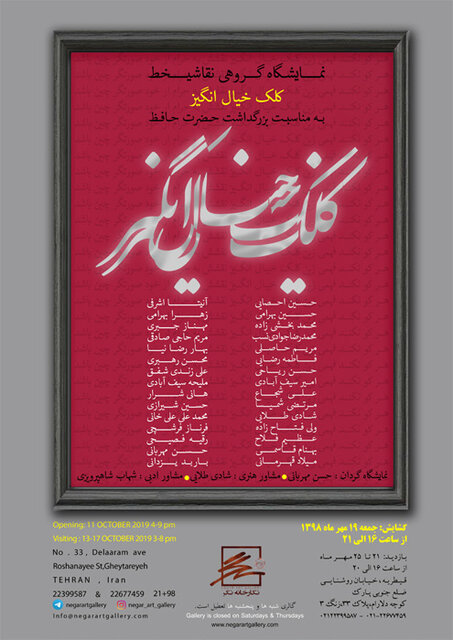 نمایشگاه گروهی نقاشیخط
کلک خیال انگیز
به مناسبت بزرگداشت حضرت حافظ
کلک خیال انگیز
حسین احصایی
حسین بهرامی
محمد بخشی زاده
محمدرضاجوادی‌نسب
مریم حاصلی
فاطمه رضایی
حسن ریاحی
امیر سیف آبادی
علی شجاع
مرتضی شمیسا
شادی طلایی
ولی فتاح زاده
عظیم فلاح
بهنام قاسمی
میلاد قهرمانی
آنیتا اشرفی
زهرا بهرامی
مهناز جبیری
مریم حاجی صادقی
بهار رضا نیا
محسن رهبری
علی زندی شفق
ملیحه سیف آبادی
هانی شرار
حسین شیرازی
محمد علی علی خانی
فرناز فرشچی
رقیه فصیحی
حسن مهربانی
باربد یزدانی
نمایشگاه گردان : حسن مهربانی • مشاور هنری : شادی طلایی • مشاور ادبی : شهاب شاهپرویزی
گشایش: جمعه ۱۹ مهر ماه ۱۳۹۸
از ساعت ۱۶ الی ۲۱
بازدید: ۲۱ تا ۲۵ مهر ماه
از ساعت ۱۶ الی ۲۰
قیطریه، خیابان روشنایی
ضلع جنوبی پارک
کوچه دلارام، پلاک ۳۳، زنگ ۳
۰۲۱-۲۲۳۹۹۵۸۷ ۰۲۱-۲۲۶۷۷۴۵۹
Opening: 11 OCTOBER 2019 4-9 pm
Visiting : 13-17 OCTOBER 2019 3-8 pm
No . 33 , Delaaram ave
Roshanayee St,Gheytareyeh
TEHRAN , Iran
22399587 & 22677459 21+98
negarartgallery negar_art_gallery
Info@negarartgallery.com
نگارخانه نگر
گالری شنبه ها و پنجشنبه ها تعطیل است.
Gallery is closed on Saturdays & Thursdays
www.negarartgallery.com